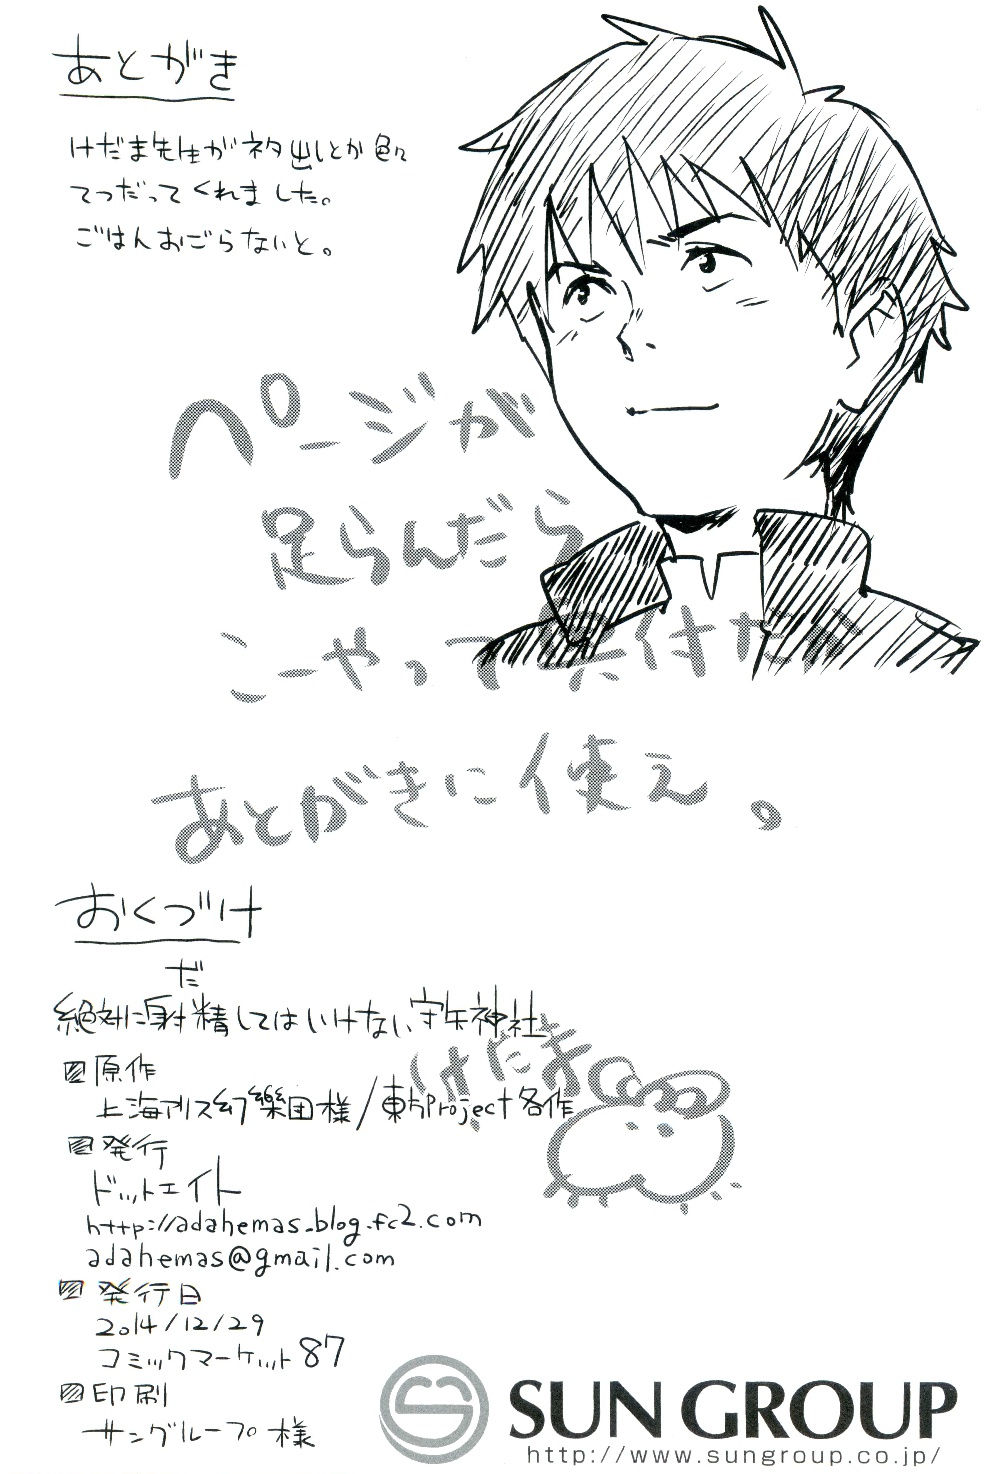 あとがき
けだま先生がネタ出しとか色々
てつだってくれました。
ごはんおごらないと。
ページが
足らんだら
こーやって奥付だか
あとがきに使え。
おくづけ
だ
絶対に射精してはいけない守矢神社
けだま
原作
上海アリス幻樂団様/東方Project各作
発行
ドットエイト
http://adahemas.blog.fc2.com
adahemas@gmail.com
発行日
2014/12/29
コミックマーケット87
印刷
サングループ様
SUN GROUP
http://www.sungroup.co.jp/